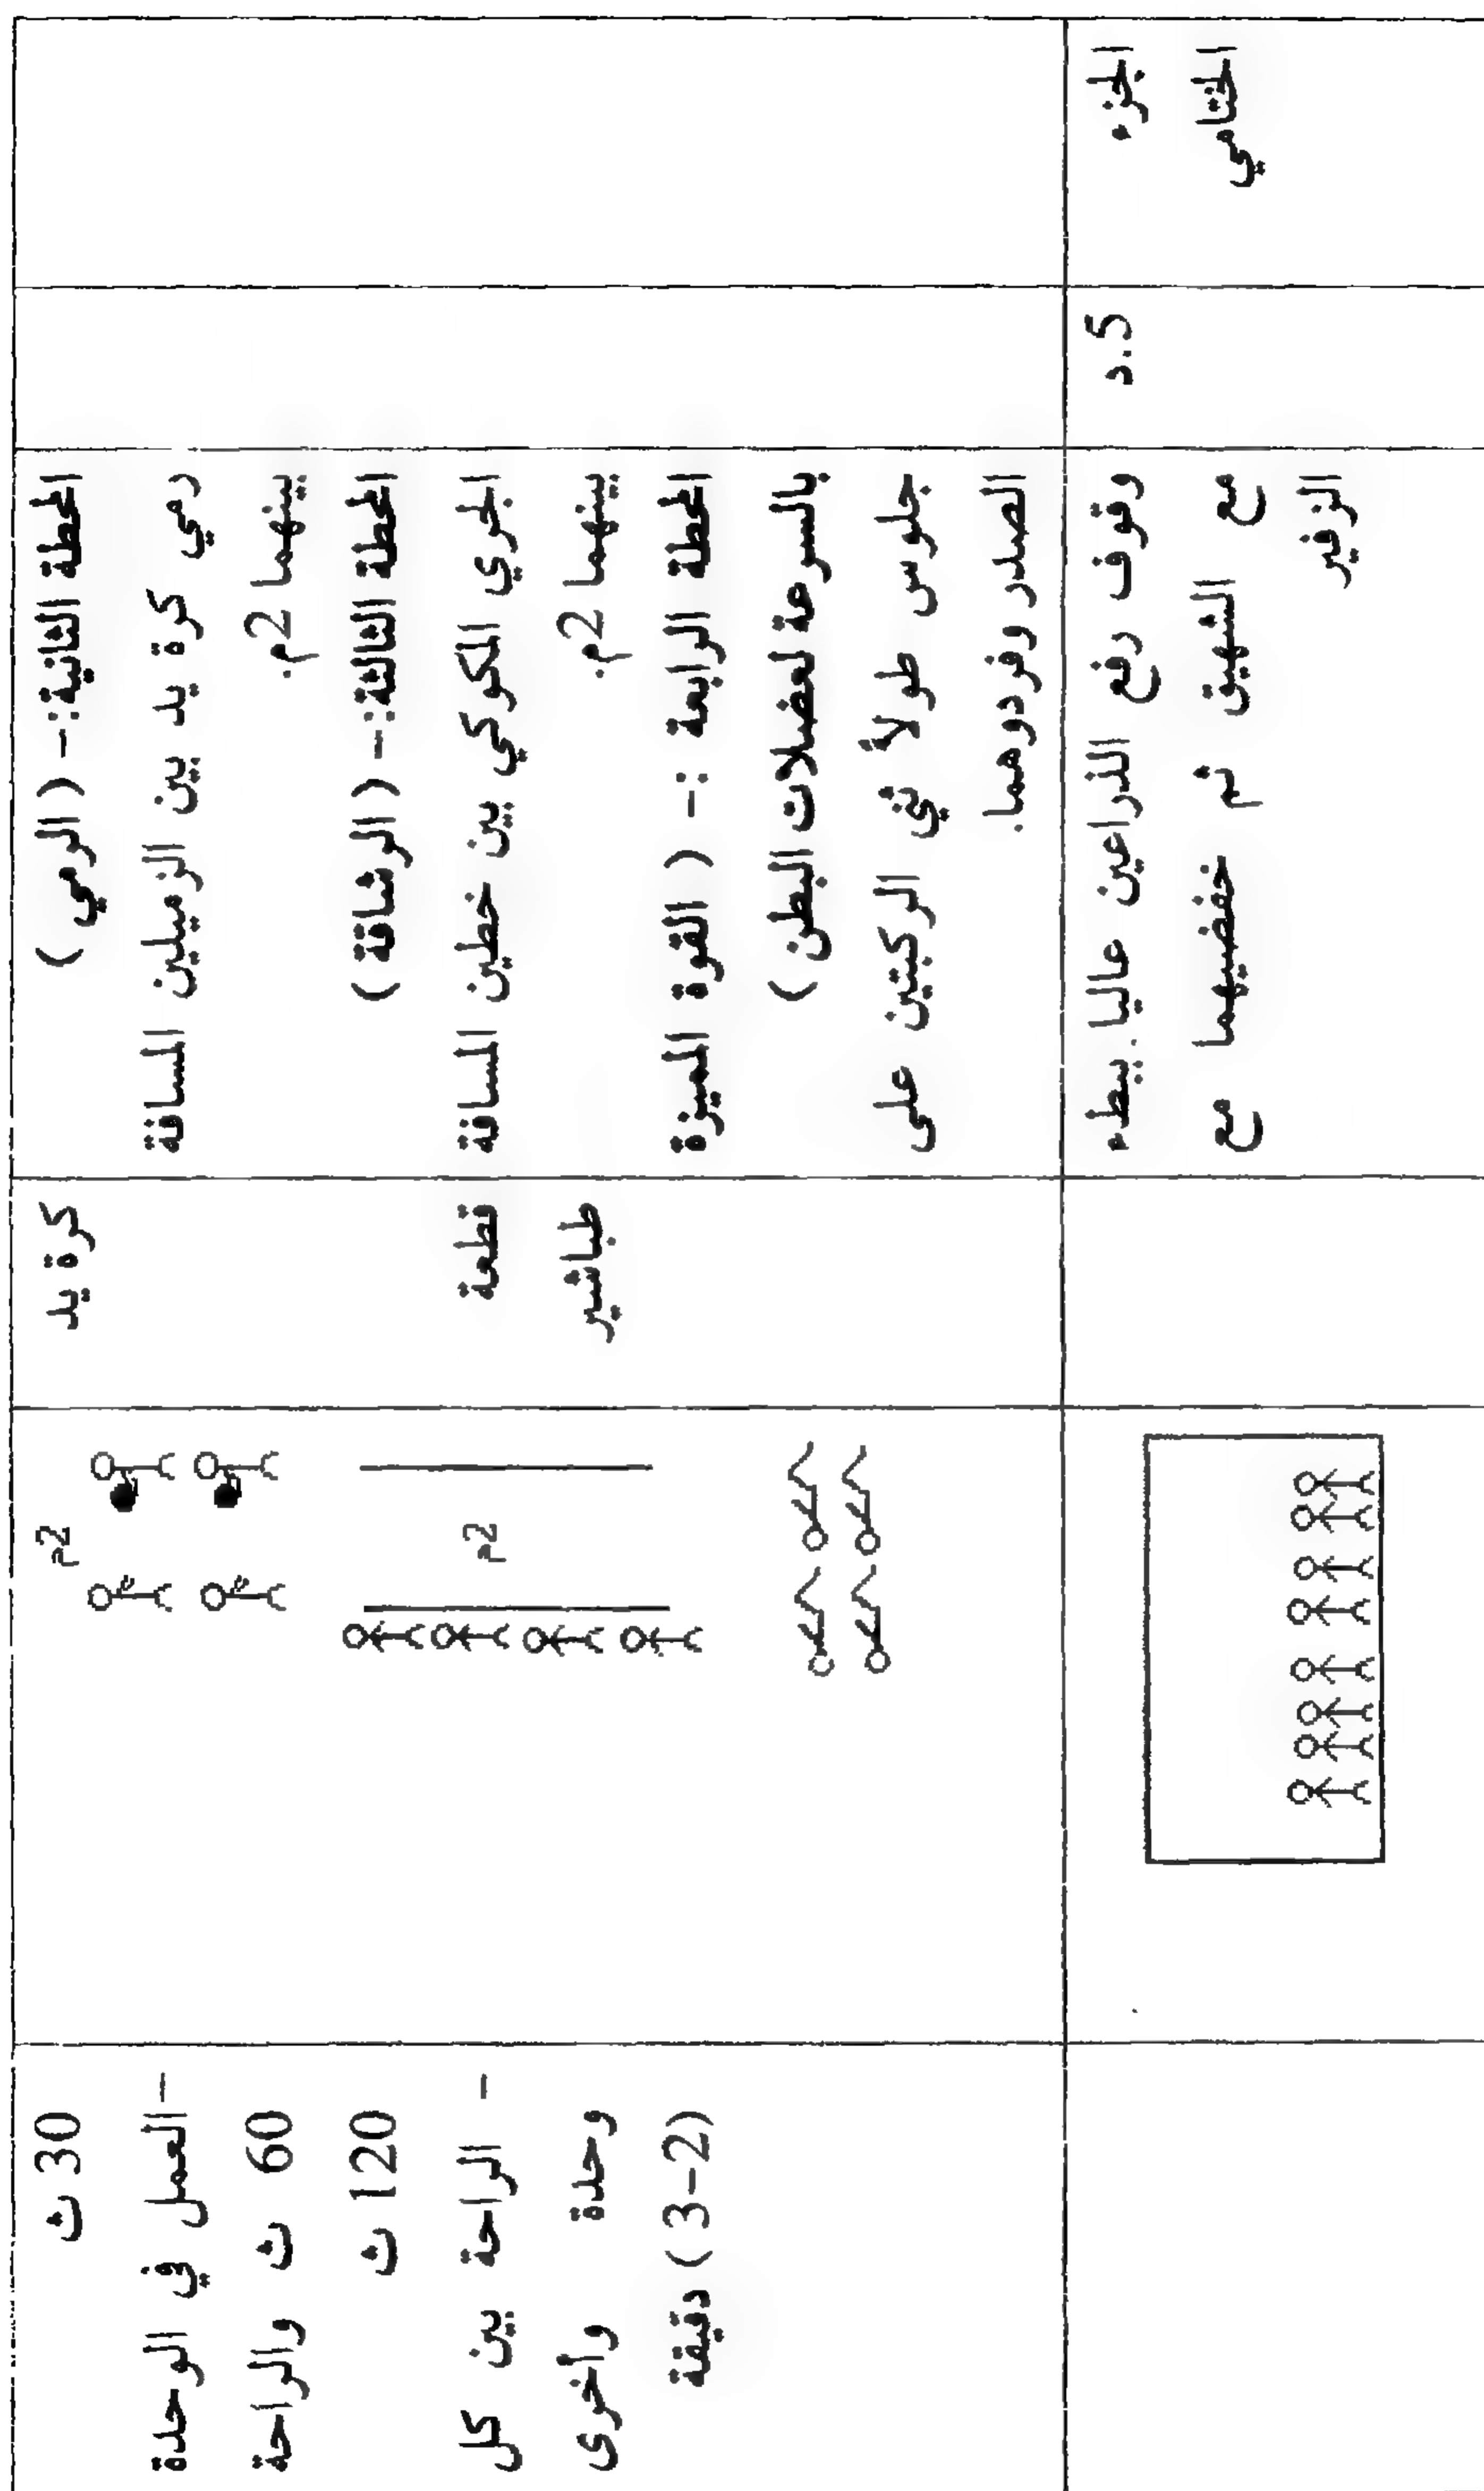 المحطة الثانية:- (الرمي )
رمي كرة يد بين الزميلين المسافة
بينهما 2م.
المحطة الثالثة:- (الرشاقة )
الجري المكوكي بين خطين المسافة
بينهما 2م.
المحطة الرابعة :- ( القوة المميزة
بالسرعة لعضلات البطن )
جلوس طولاً ثني الركبتين على
الصدر وفردوهما.
كرة يد
قطعة
طباشير
م2
م2
30 ث
-العمل في الوحدة
60 ث والراحة
120 ث
- الراحة بين كل
وحدة وأخرى
(2-3 ) دقيقة
الجزء
الختامي
5.د
وقوف رفع الذراعين عاليا.ببطء
مع الشهيق ثم خفضيهما مع
الزفير